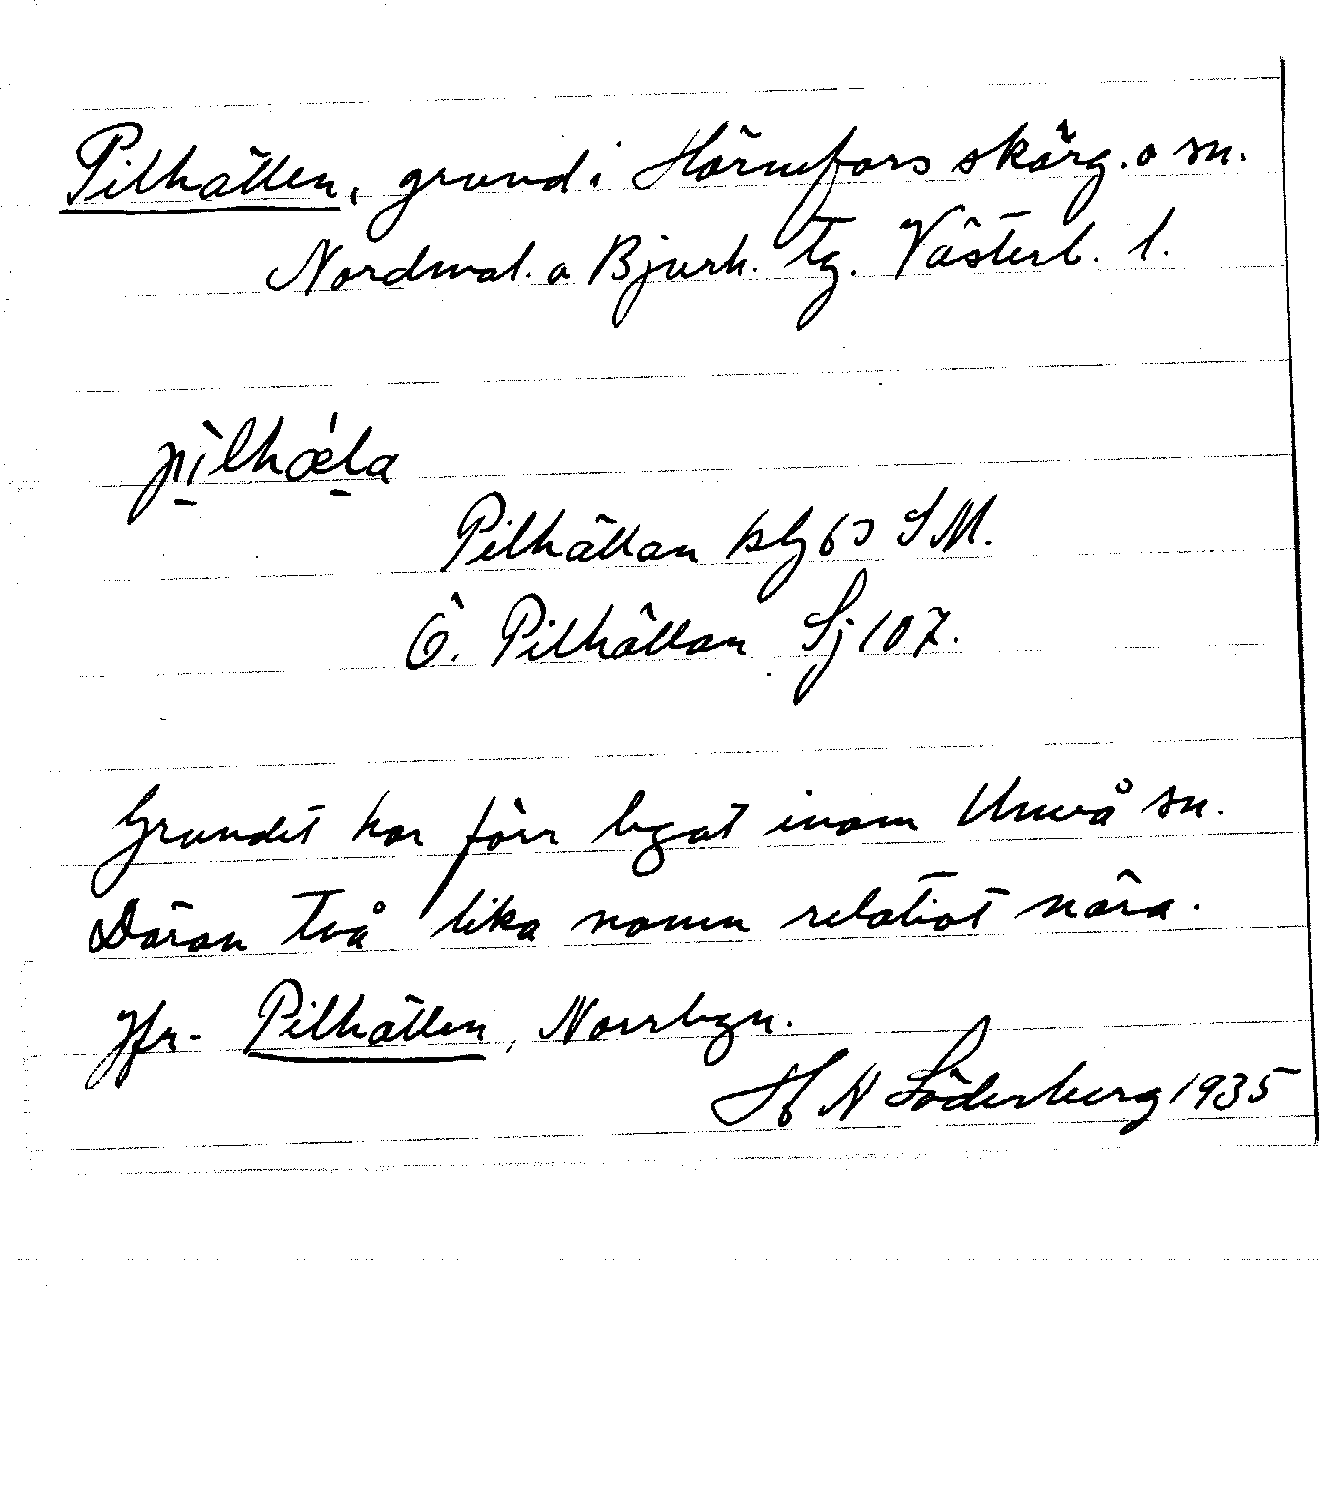 Pilhällen, grund i Hörnefors skärg. o sn.
Nordmal. o Bjurh. tg. Västerb. l.
pìlhæ̀la
Pilhällan blg 63 SM.
Ö. Pilhällan Sj 107.
Grundet har förr legat inom Umeå sn.
Däran två lika namn relativt nära.
Jfr. Pilhällen, Norrbyn.
H N Söderberg 1935